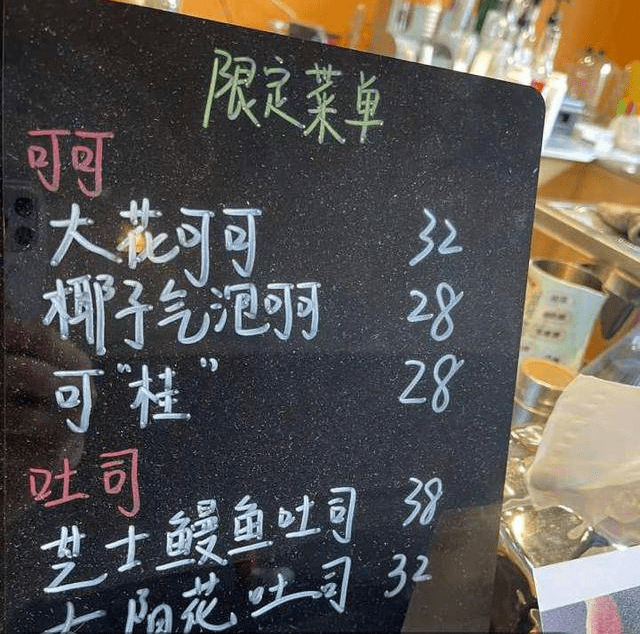 限定菜单
可可
大花可可 32
椰子气泡可可 28
可"桂" 28
吐司
芝士鳗鱼吐司 38
太阳花吐司 32